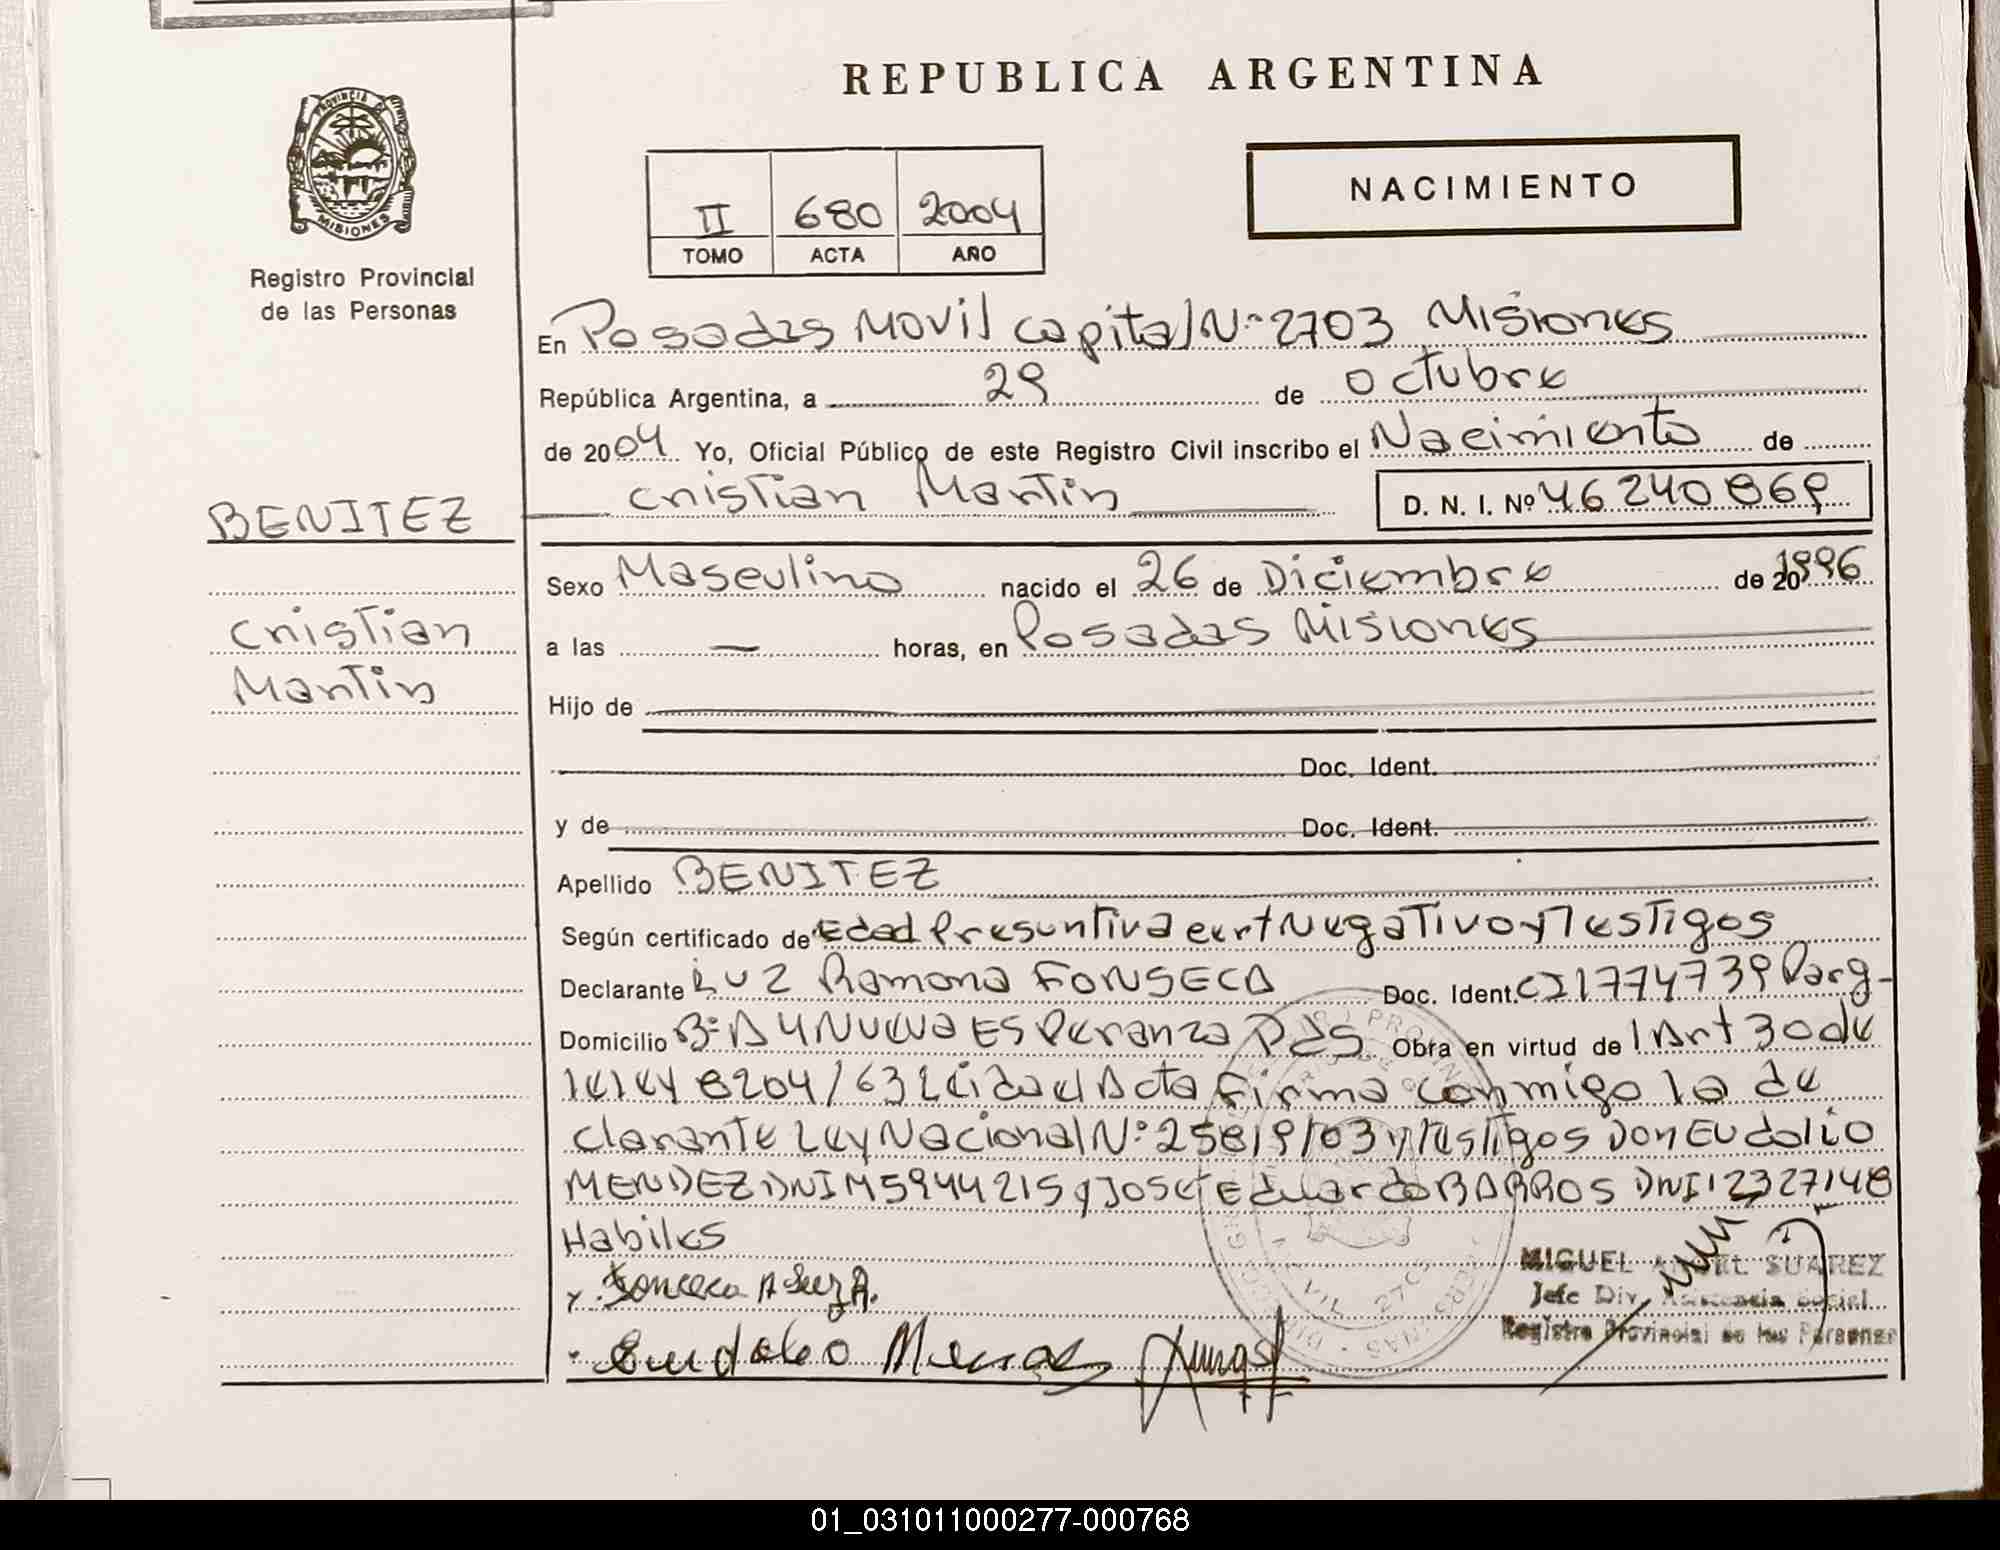 REPUBLICA ARGENTINA
PROVINCIA DE
MISIONES
Registro Provincial
de las Personas
NACIMIENTO
II 680 2004
TOMO ACTA AÑO
En Posadas Movil Capital N° 2703 Misiones
República Argentina, a 29 de octubre
de 2004 Yo, Oficial Público de este Registro Civil inscribo el Nacimiento de
Cristian Martin D. N. I. Nº 46240869
BENITEZ
Cristian
Martin
Sexo Masculino nacido el 26 de Diciembre de 20 1996
a las — horas, en Posadas Misiones
Hijo de
Doc. Ident.
y de Doc. Ident.
Apellido BENITEZ
Según certificado de Edad Presuntiva cert Negativo y Testigos
Declarante Luz Ramona FONSECA Doc. Ident. CI 1774739 Parg-
Domicilio B° A4 Nueva Esperanza Pdas Obra en virtud de l Art 30 de
la ley 8204/63 Leida el Acta Firma conmigo la de
clarante Ley Nacional N° 25819/03 y Testigos Don Eudalio
MENDEZ DNI M5944215 y José Eduardo BARROS DNI 12327148
Habiles
MIGUEL ANGEL SUAREZ
Jefe Div. Asistencia Social
Registro Provincial de las Personas
01_031011000277-000768